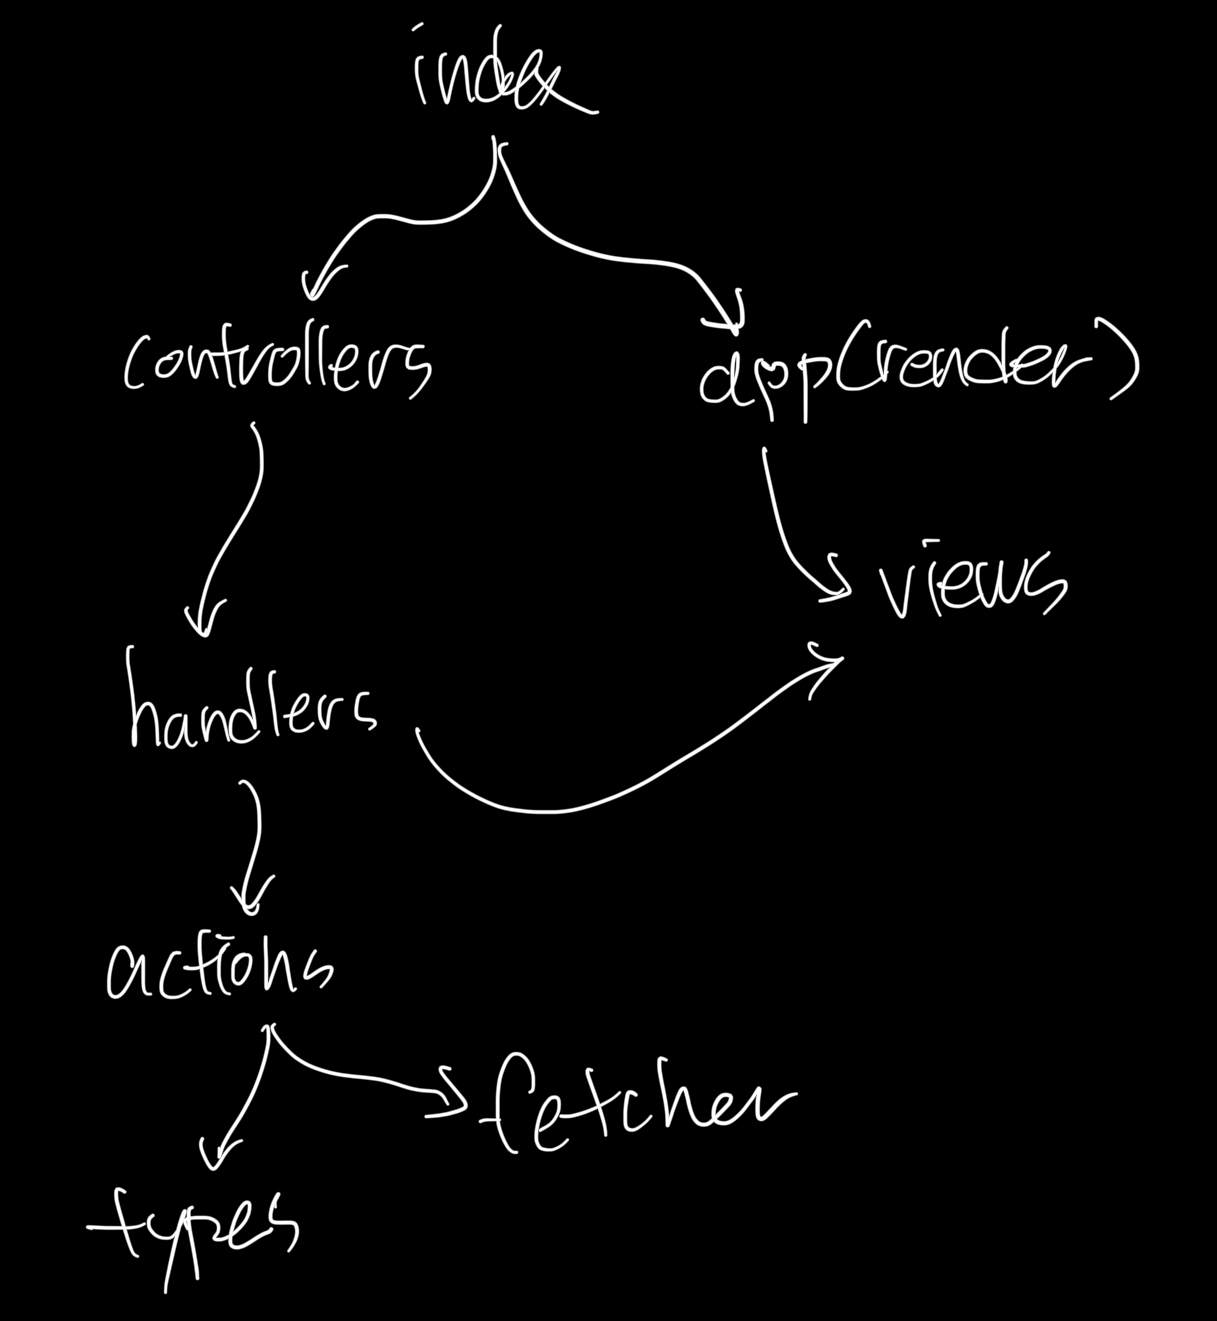 index
controllers
app(render)
views
handlers
actions
fetcher
types